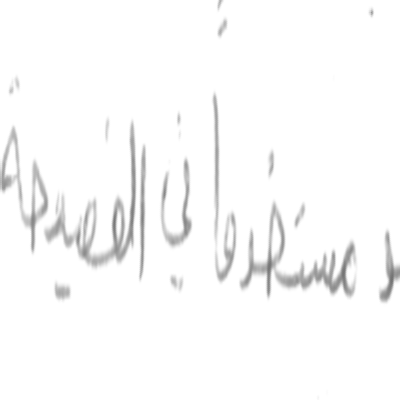 مستخدما في الفصيحة